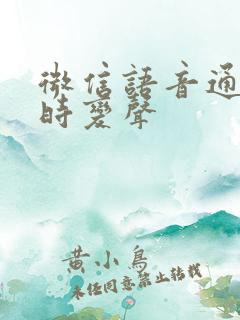 微信語音通
時變聲
黃小鳥
未經同意禁止轉載